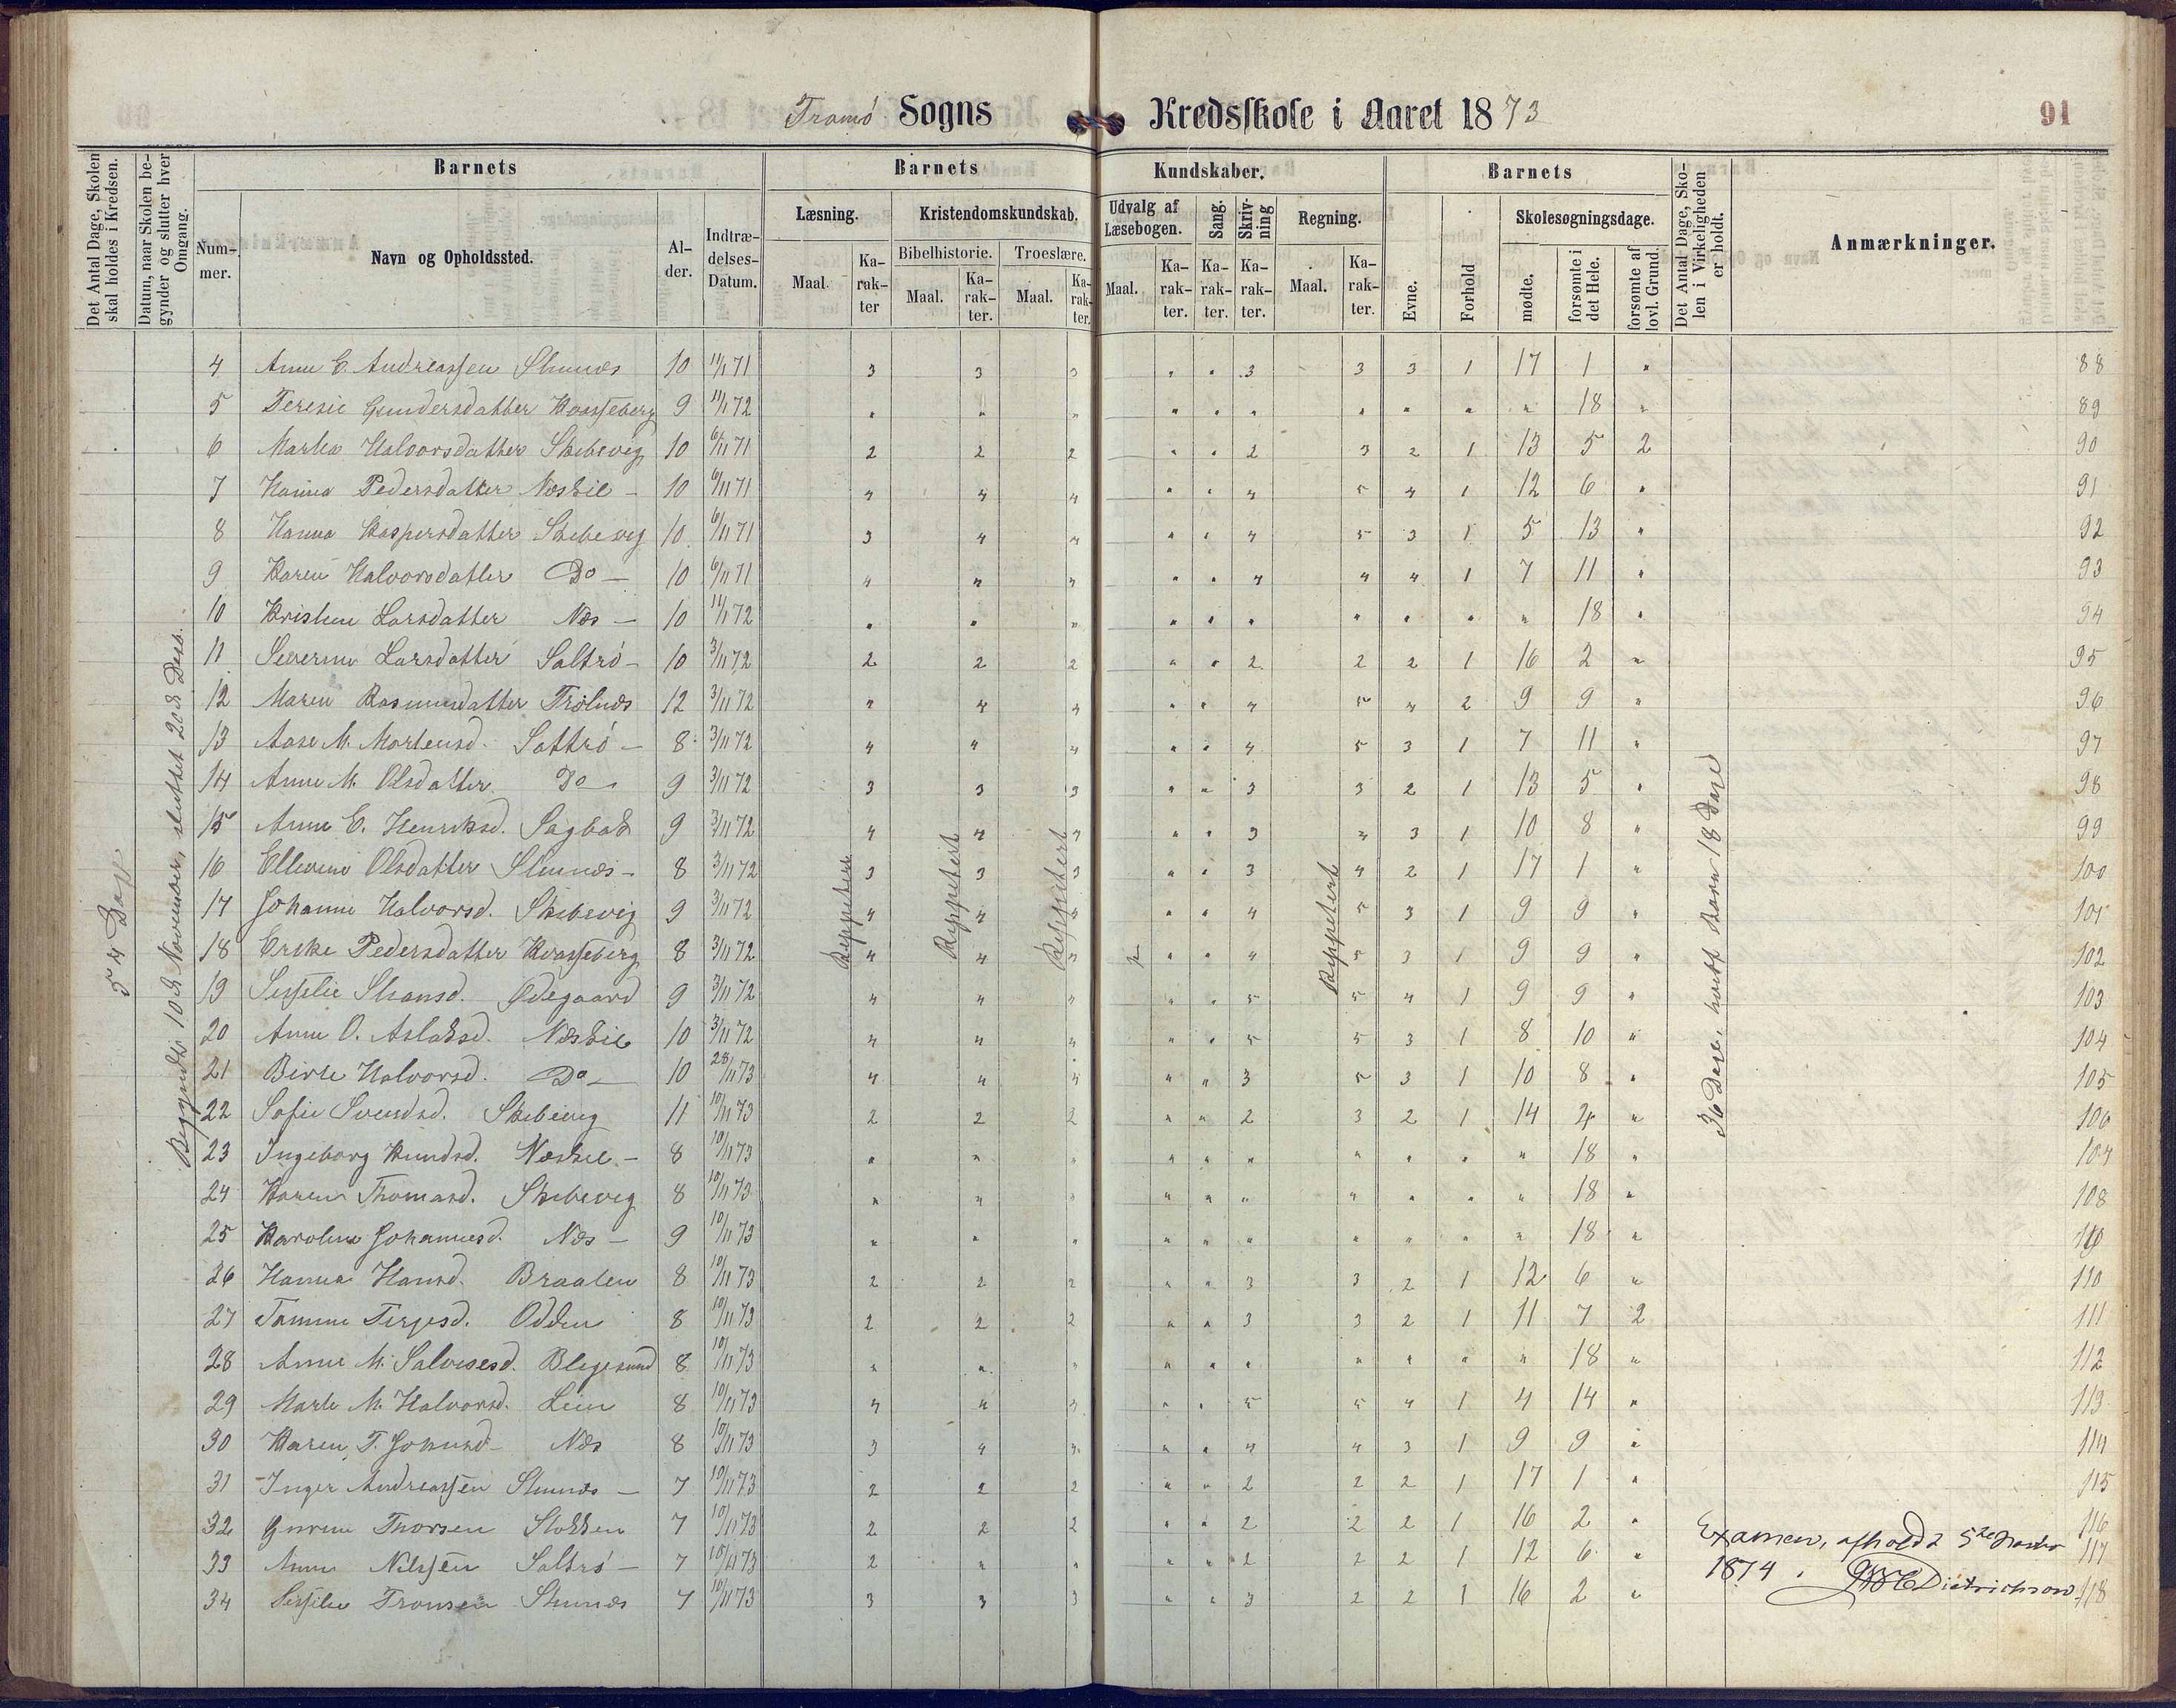 Tromø Sogns Kredsskole i Aaret 1873
91
Det Antal Dage, Skolen skal holdes i Kredsen.
Datum, naar Skolen begynder og slutter hver Omgang.
Barnets
Nummer.
Navn og Opholdssted.
Alder.
Indtrædelses-Datum.
Barnets Kundskaber.
Læsning.
Maal.
Karakter
Kristendomskundskab.
Bibelhistorie.
Maal.
Karakter.
Troeslære.
Maal.
Karakter.
Udvalg af Læsebogen.
Maal.
Karakter.
Sang.
Karakter.
Skrivning
Karakter.
Regning.
Maal.
Karakter.
Barnets
Evne.
Forhold
Skolesøgningsdage.
mødte.
forsømte i det Hele.
forsømte af lovl. Grund.
Det Antal Dage, Skolen i Virkeligheden er holdt.
Anmærkninger.
54 Dage
Begyndte 10de November, sluttet 20de Desb.
Reppetert
Reppetert
Reppetert
Reppetert
36 Dage, hvert Barn 18 Dage
4 Anne E. Andreassen Stunæs 10 11/1 71 3 3 3 " " 3 3 3 1 17 1 " 88
5 Teresie Gundersdatter Kvasseberg 9 11/1 72 " " " " " " " " " " 18 " 89
6 Marthe Halvorsdatter Skibevig 10 6/11 71 2 2 2 " " 2 3 2 1 13 5 2 90
7 Hanna Pedersdatter Næskil - 10 6/11 71 4 4 4 " " 4 5 4 1 12 6 " 91
8 Hanna Kaspersdatter Skibevig 10 6/11 71 3 4 4 " " 4 5 3 1 5 13 " 92
9 Karen Halvorsdatter Do - 10 6/11 71 4 4 4 " " 4 4 4 1 7 11 " 93
10 Kristine Larsdatter Næs - 10 11/1 72 " " " " " " " " " " 18 " 94
11 Severine Larsdatter Saltrø - 10 3/11 72 2 2 2 " " 2 2 2 1 16 2 " 95
12 Maren Rasmusdatter Trolnæs 12 3/11 72 4 4 4 " " 4 5 4 2 9 9 " 96
13 Aase M. Mortensd. Saltrø - 8 3/11 72 4 4 4 " " 4 5 3 1 7 11 " 97
14 Anne M. Olsdatter Do 9 3/11 72 3 3 3 " " 3 3 2 1 13 5 " 98
15 Anne E. Henriksd. Sagbak 9 3/11 72 4 4 4 " " 3 4 3 1 10 8 " 99
16 Ellevine Olsdatter Stunæs - 8 3/11 72 3 3 3 " " 3 4 2 1 17 1 " 100
17 Johanne Halvorsd. Skibevig 9 3/11 72 4 4 4 " " 4 5 3 1 9 9 " 101
18 Ericke Pedersdatter Kvasseberg 8 3/11 72 4 4 4 " " 4 5 3 1 9 9 " 102
19 Sisselie Stiansd. Ødegaard 9 3/11 72 4 4 4 " " 5 5 4 1 9 9 " 103
20 Anne O. Aslaksd. Næskil 10 3/11 72 4 4 4 " " 5 5 3 1 8 10 " 104
21 Birte Halvorsd. Do - 10 28/11 73 4 4 4 " " 3 5 3 1 10 8 " 105
22 Sofie Svendsd. Skibevig 11 10/11 73 2 2 2 " " 2 3 2 1 14 4 " 106
23 Ingeborg Knudsd. Næskil - 8 10/11 73 " " " " " " " " " " 18 " 107
24 Karen Thomasd. Skibevig 8 10/11 73 " " " " " " " " " " 18 " 108
25 Karoline Johannesd. Næs - 9 10/11 73 " " " " " " " " " " 18 "
26 Hanna Hansd. Braaten 8 10/11 73 2 2 2 " " 3 3 2 1 12 6 " 110
27 Tomine Terjesd. Odden 8 10/11 73 2 2 2 " " 3 3 2 1 11 7 2 111
28 Anne M. Salvesesd. Blegesund 8 10/11 73 " " " " " " " " " " 18 " 112
29 Marte M. Halvorsd. Leien 8 10/11 73 4 4 4 " " 5 5 4 1 4 14 " 113
30 Karen T. Johnsd. Næs 8 10/11 73 3 4 4 " " 4 4 3 1 9 9 " 114
31 Inger Andreassen Stunæs - 7 10/11 73 2 2 2 " " 2 2 2 1 17 1 " 115
32 Gurine Thorsen Stokken 7 10/11 73 2 2 2 " " 2 2 2 1 16 2 " 116
33 Anne Nilssen Saltrø - 7 10/11 73 2 " " " " 2 2 2 1 12 6 " 117
34 Sisselie Tronsen Stunæs 7 10/11 73 3 3 3 " " 3 2 2 1 16 2 " 118
Examen, afholdt 5te
1874. Dietrichson